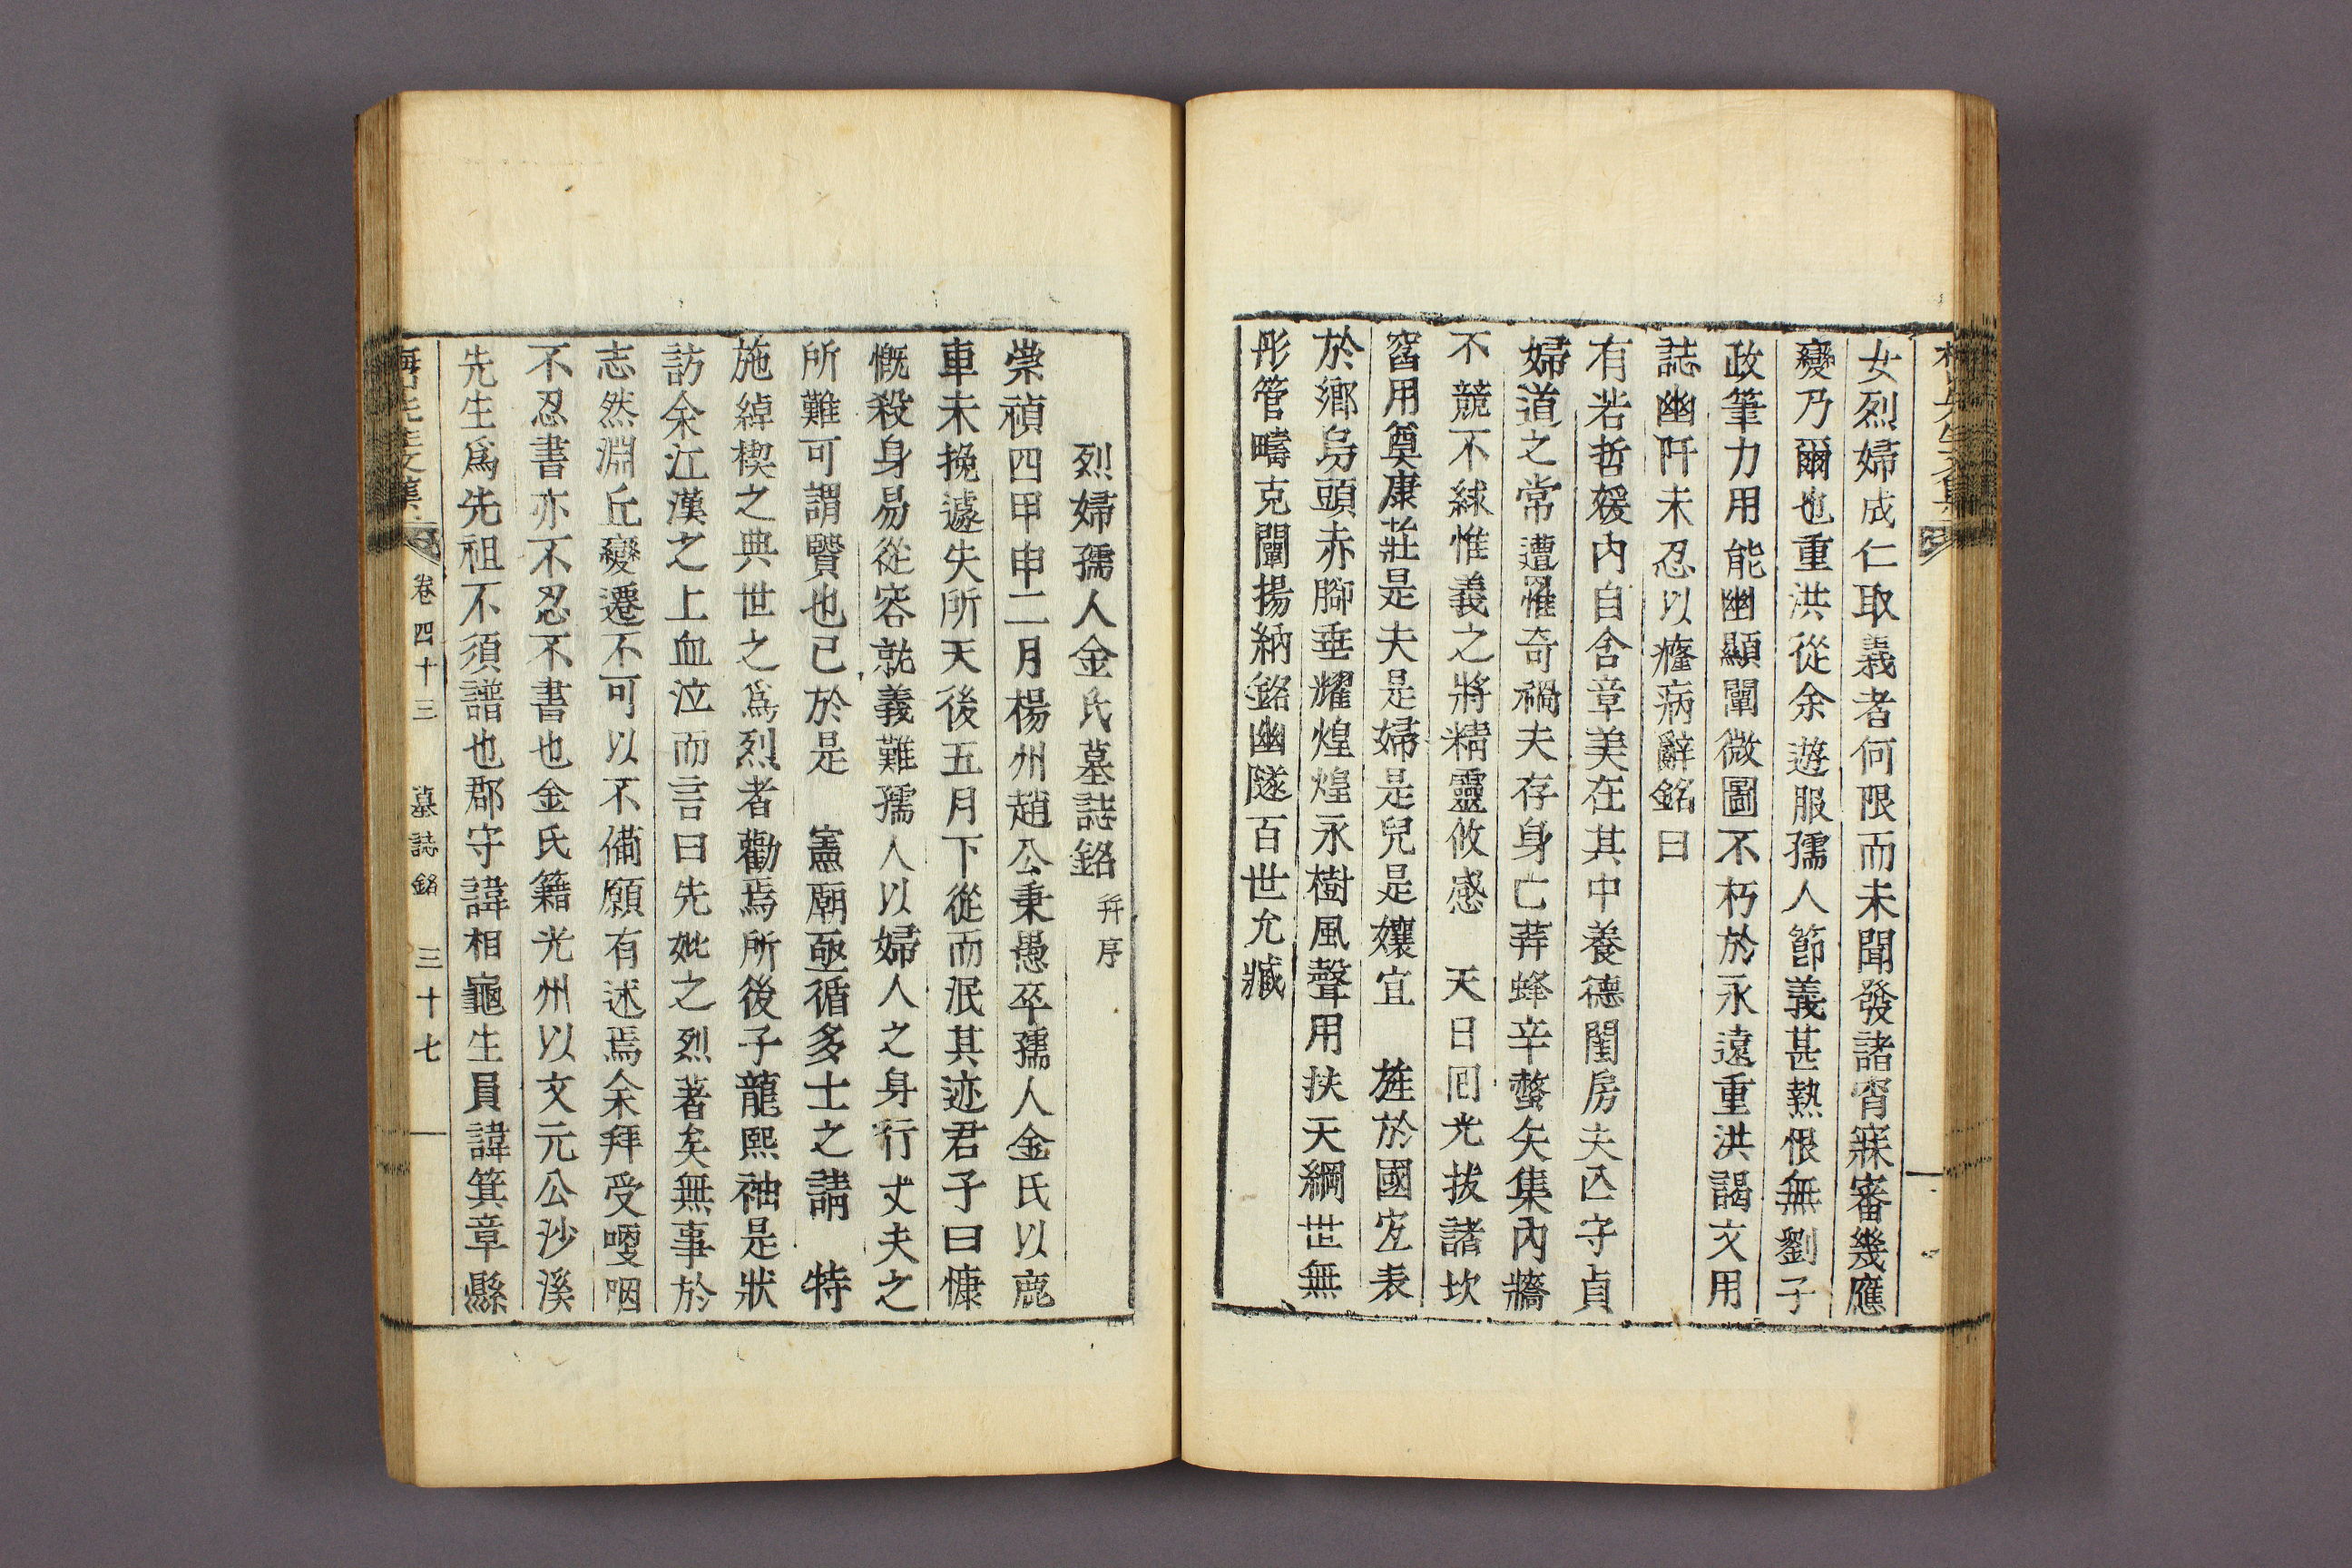 女烈婦成仁取義者何限而未聞發諸宵寐審幾應
變乃爾也重洪從余遊服孺人節義甚熟恨無劉子
政筆力用能幽顯闡微圖不朽於永遠重洪謁文用
誌幽阡未忍以癃病辭銘曰
有若哲媛內自含章美在其中養德閨房夫亾守貞
婦道之常遭罹奇禍夫存身亡荓蜂辛螫矢集內牆
不競不絿惟義之將精靈攸感 天日回光拔諸坎
窞用奠康莊是夫是婦是兒是孃宜 旌於國㝎表
於鄉烏頭赤腳垂耀煌煌永樹風聲用扶天綱世無
彤管疇克闡揚納銘幽隧百世允臧
烈婦孺人金氏墓誌銘 幷序
崇禎四甲申二月楊州趙公秉愚卒孺人金氏以鹿
車未挽遽失所天後五月下從而泯其迹君子曰慷
慨殺身易從容就義難孺人以婦人之身行丈夫之
所難可謂賢也已於是 憲廟亟循多士之請 特
施綽楔之典世之爲烈者勸焉所後子龍熙袖是狀
訪余江漢之上血泣而言曰先妣之烈著矣無事於
志然淵丘變遷不可以不備願有述焉余拜受嚘咽
不忍書亦不忍不書也金氏籍光州以文元公沙溪
先生爲先祖不須譜也郡守諱相龜生員諱箕章縣
先生文集 卷四十三 墓誌銘 三十七